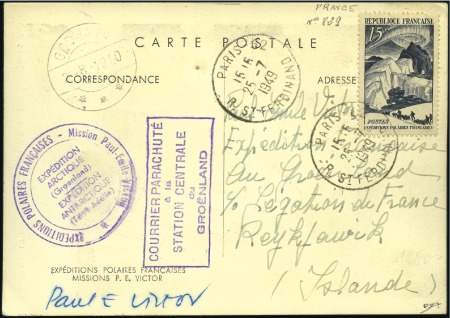 FRANCE
N° 829
CARTE POSTALE
CORRESPONDANCE
ADRESSE
PARIS 62
15 15
25 -7
1949
R. ST FERDINAND
RÉPUBLIQUE FRANÇAISE
15F
POSTES
EXPÉDITIONS POLAIRES FRANÇAISES
PARIS
15 15
25
1949
R. ST FERDINAND
EXPÉDITIONS POLAIRES FRANÇAISES - Mission Paul-Emile Victor
EXPÉDITION
ARCTIQUE
(Groenland)
EXPÉDITION
ANTARCTIQUE
(Terre Adélie)
COURRIER PARACHUTÉ
à la
STATION CENTRALE
du
GROËNLAND
Victor
Expédition Française
au Groenland
c/o Légation de France
Reykjawik
(Islande)
EXPÉDITIONS POLAIRES FRANÇAISES
MISSIONS P. E. VICTOR
Paul E Victor